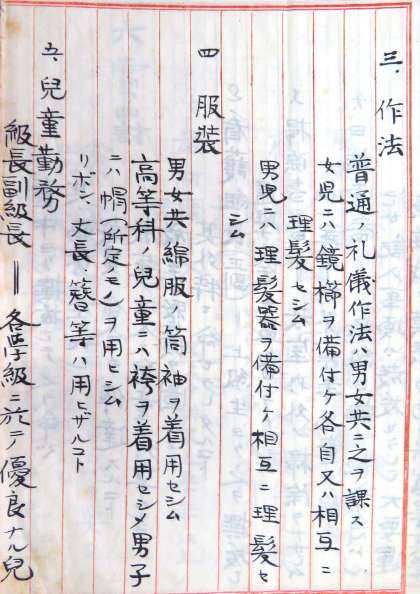 三、作法
普通ノ礼儀作法ハ男女共ニ之ヲ課ス
女児ニハ鏡櫛ヲ備付ケ各自又ハ相互ニ
理髪セシム
男児ニハ理髪器ヲ備付ケ相互ニ理髪セ
シム
四 服装
男女共綿服ノ筒袖ヲ着用セシム
高等科ノ兒童ニハ袴ヲ着用セシメ男子
ニハ帽(所定ノモノ)ヲ用ヒシム
リボン、丈長、簪等ハ用ヒザルコト
五、兒童勤務
級長副級長 ‖ 各学級ニ於テ優良ナル兒